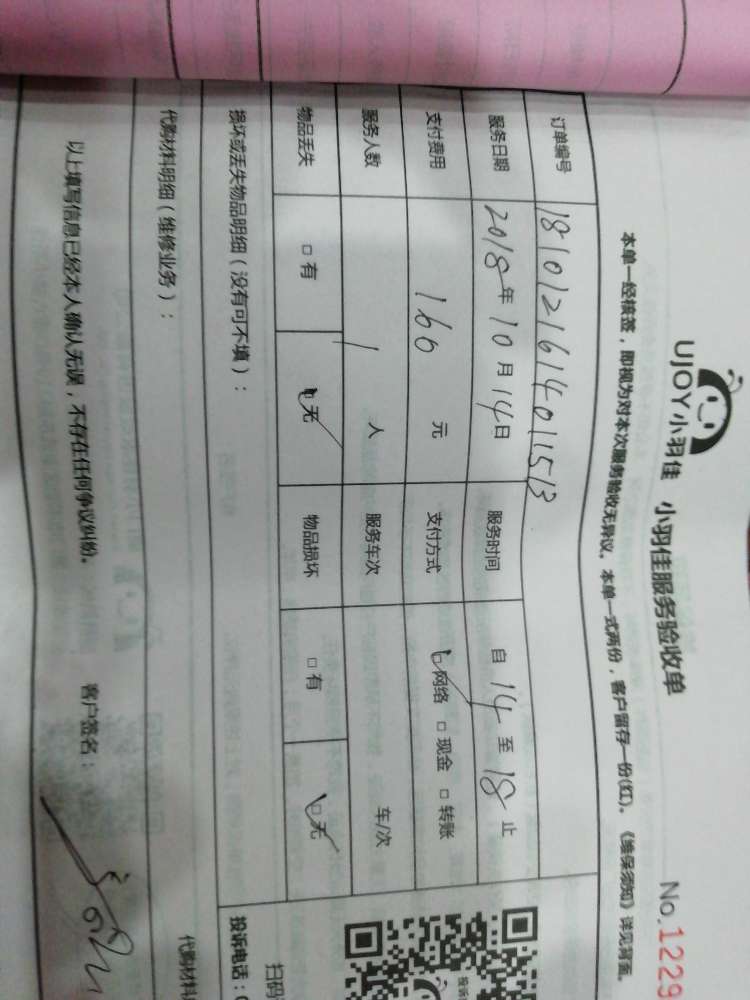 UJOY小羽佳 小羽佳服务验收单 No.1229
本单一经核签，即视为对本次服务验收无异议。本单一式两份，客户留存一份(红)。《维保须知》详见背面。
订单编号 1810121614011513
服务日期 2018年10月14日 服务时间 自14至18止
支付费用 160元 支付方式 □网络 □现金 □转账
服务人数 1人 服务车次 车/次
物品丢失 □有 □无 物品损坏 □有 □无
损坏或丢失物品明细（没有可不填）： 投诉电话：
代购材料明细（维修业务）： 代购材料
以上填写信息已经本人确认无误，不存在任何争议纠纷。 客户签名：
扫码
投诉